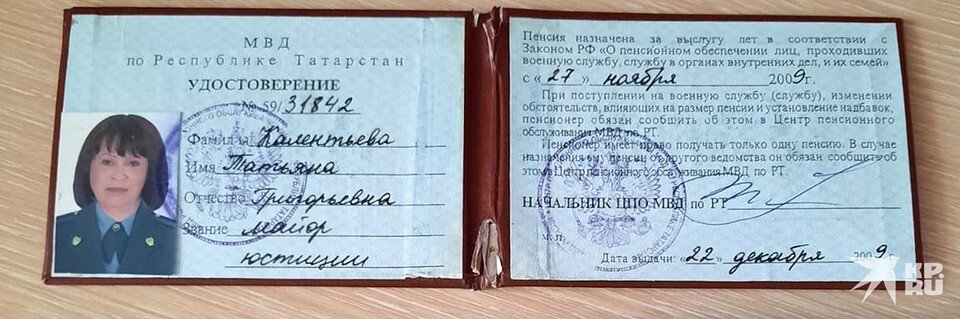 МВД
по Республике Татарстан
УДОСТОВЕРЕНИЕ
№ 59/31842
Фамилия Калентьева
Имя Татьяна
Отчество Григорьевна
Звание майор
юстиции
Пенсия назначена за выслугу лет в соответствии с
Законом РФ «О пенсионном обеспечении лиц, проходивших
военную службу, службу в органах внутренних дел, и их семей»
с «27» ноября 2009г.
При поступлении на военную службу (службу), изменении
обстоятельств, влияющих на размер пенсии и установление надбавок,
пенсионер обязан сообщить об этом в Центр пенсионного
обслуживания МВД по РТ.
Пенсионер имеет право получать только одну пенсию. В случае
назначения ему пенсии от другого ведомства он обязан сообщить об
этом в Центр пенсионного обслуживания МВД по РТ.
НАЧАЛЬНИК ЦПО МВД по РТ
м.п.
Дата выдачи: «22» декабря 2009г.
KP.RU